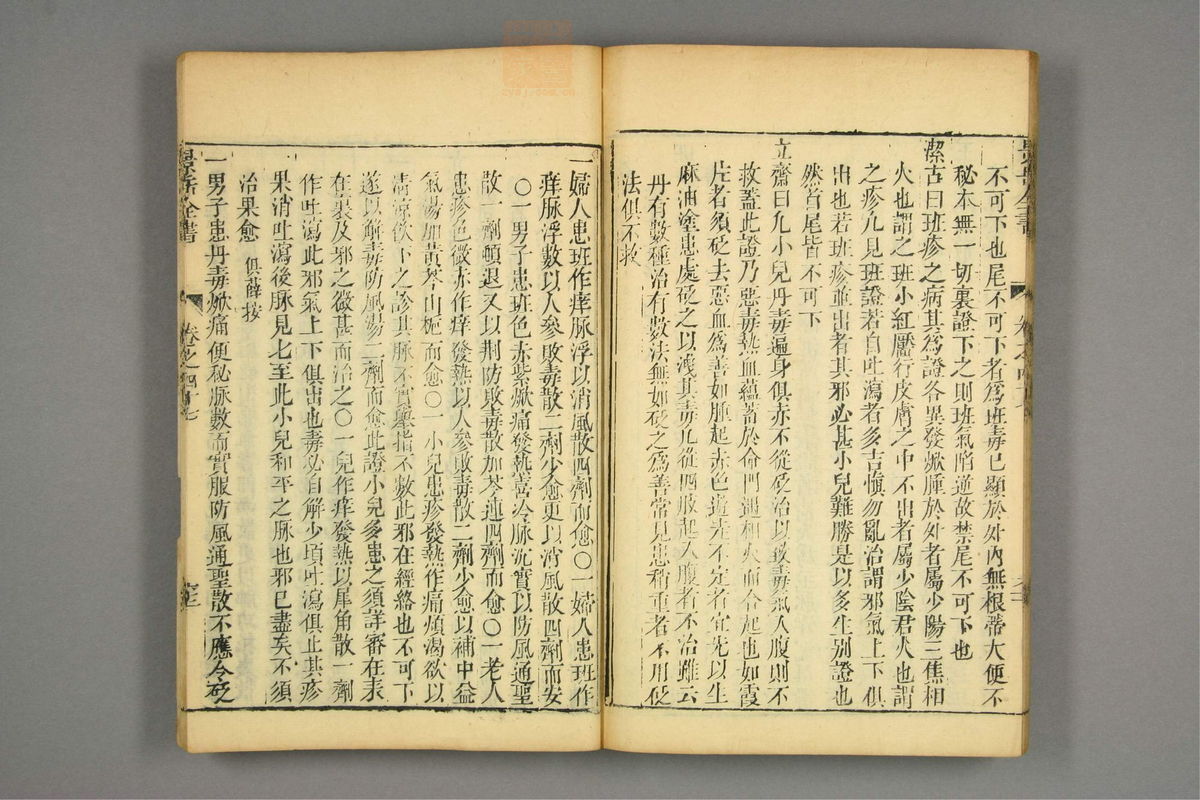 不可下也尾不可下者爲班毒已顯於外内無根蒂大便不
秘本無一切裏證下之則班氣陷逆故禁尾不可下也
潔古曰班疹之病其爲證各異發焮腫於外者屬少陽三焦相
火也謂之班小紅靨行皮膚之中不出者屬少陰君火也謂
之疹凡見班證若自吐瀉者多吉愼勿亂治謂邪氣上下俱
出也若班疹並出者其邪必甚小兒難勝是以多生别證也
然首尾皆不可下
立齋曰凡小兒丹毒遍身俱赤不從砭治以致毒氣入腹則不
救蓋此證乃惡毒熱血蘊蓄於命門遇相火而合起也如霞
片者須砭去惡血爲善如腫起赤色遊走不定者宜先以生
麻油塗患處砭之以洩其毒凡從四肢起入腹者不治雖云
丹有數種治有數法無如砭之爲善常見患稍重者不用砭
法俱不救
一婦人患班作痒脉浮以消風散四劑而愈〇一婦人患班作
痒脉浮數以人參敗毒散二劑少愈更以消風散四劑而安
〇一男子患班色赤紫焮痛發熱喜冷脉沉實以防風通聖
散一劑頓退又以荆防敗毒散加芩連四劑而愈〇一老人
患疹色微赤作痒發熱以人參敗毒散二劑少愈以補中益
氣湯加黄芩山梔而愈〇一小兒患疹發熱作痛煩渴欲以
清凉飲下之診其脉不實舉指不數此邪在經絡也不可下
遂以解毒防風湯二劑而愈此證小兒多患之須詳審在表
在裏及邪之微甚而治之〇一兒作痒發熱以犀角散一劑
作吐瀉此邪氣上下俱出也毒必自解少頃吐瀉俱止其疹
果消吐瀉後脉見七至此小兒和平之脉也邪已盡矣不須
治果愈 俱薛按
一男子患丹毒焮痛便秘脉數而實服防風通聖散不應令砭
景岳全書
卷之四十七